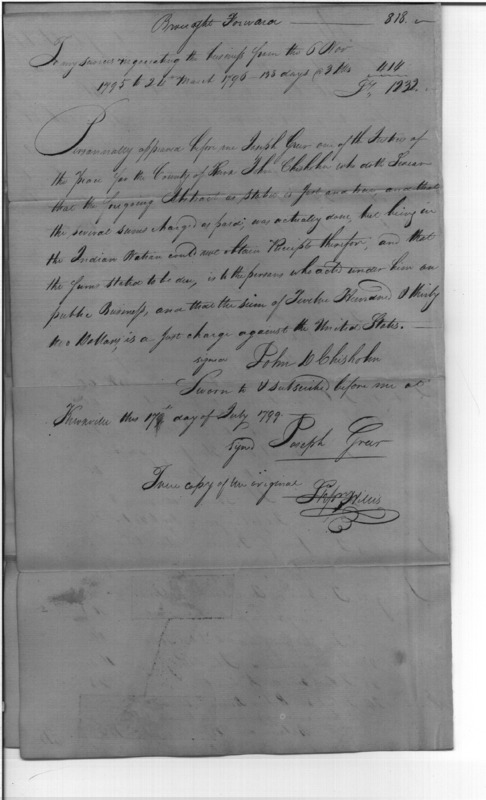 Brought Forward — 818. —
To my services negociating the business from the 6 Nov
1795 to 24th March 1796 - 138 days @ 3 Dlls 414
1232. —
Personnally appeared before me Joseph Greer one of the Justices of
the peace for the County of Knox John Chisholm who doth Swear
that the foregoing Abstract as stated is Just and true and that
the several sums charged as paid, was actually done, but being in
the Indian Nation could not obtain Receipts therefor, and that
the sums stated to be due, is to the persons who acted under him on
public Business, and that the sum of Twelve Hundred & thirty
two Dollars, is a just charge against the United States. —
signed John D Chisholm
Sworn to & subscribed before me at
Knoxville this 17th day of July 1799
Signed Joseph Greer
True copy of the original
Hillis